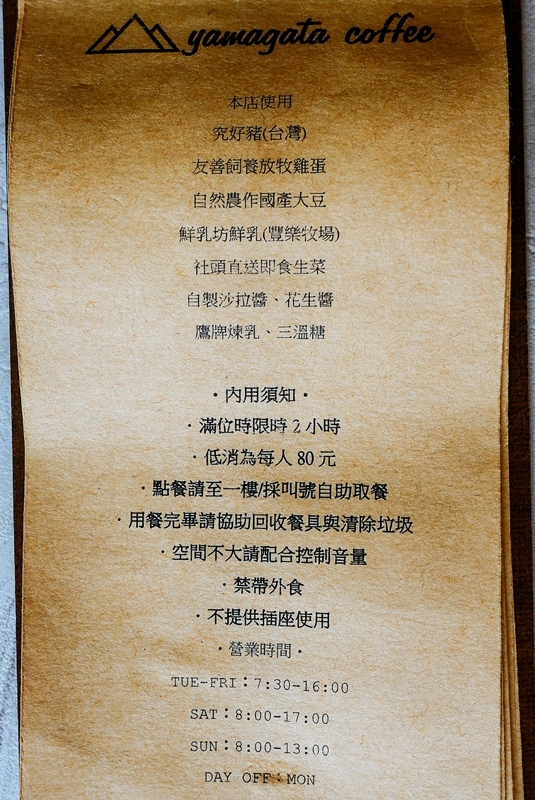 yamagata coffee
本店使用
究好豬(台灣)
友善飼養放牧雞蛋
自然農作國產大豆
鮮乳坊鮮乳(豐樂牧場)
社頭直送即食生菜
自製沙拉醬、花生醬
鷹牌煉乳、三溫糖
·內用須知·
·滿位時限時 2 小時
·低消為每人 80 元
·點餐請至一樓/採叫號自助取餐
·用餐完畢請協助回收餐具與清除垃圾
·空間不大請配合控制音量
·禁帶外食
·不提供插座使用
·營業時間·
TUE-FRI：7:30-16:00
SAT：8:00-17:00
SUN：8:00-13:00
DAY OFF：MON